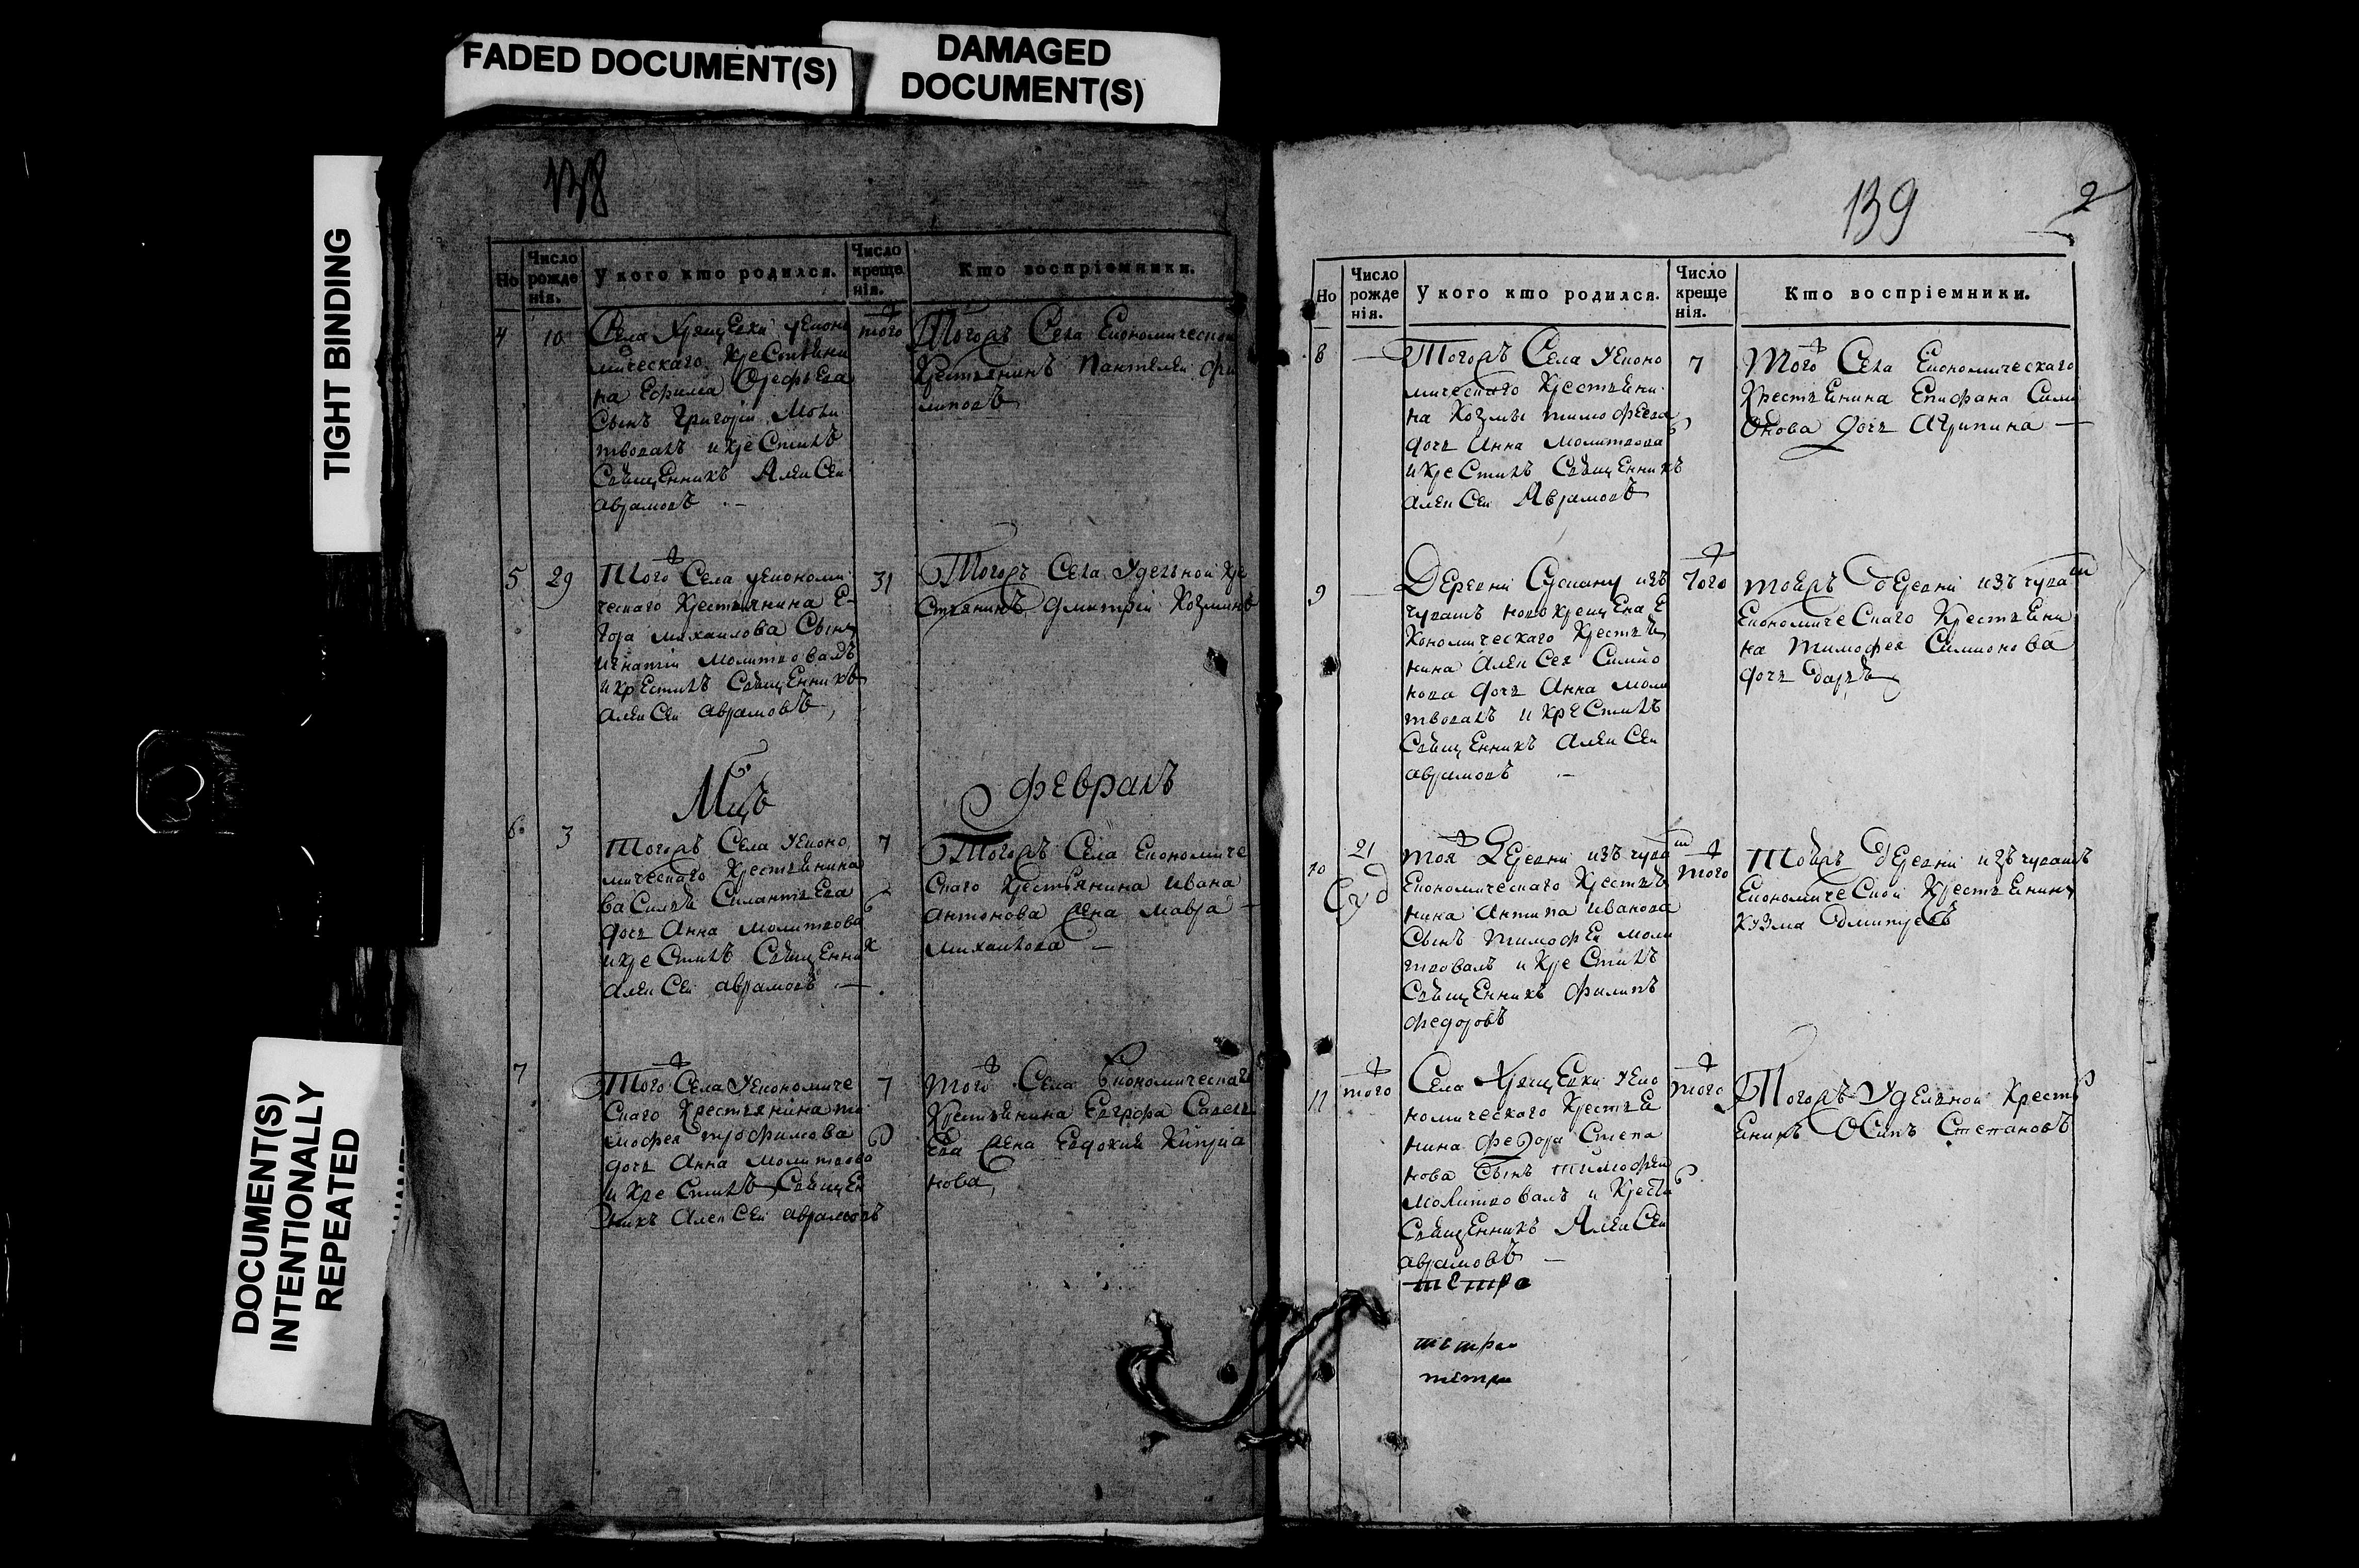 FADED DOCUMENT(S)
DAMAGED
DOCUMENT(S)
TIGHT BINDING
DOCUMENT(S)
INTENTIONALLY
REPEATED
138
Но
Число
рожде
нія.
У кого кто родился.
Число
креще
нія.
Кто воспріемники.
4
10
Села Хрящевки уеконо
мическаго крестьяни
на Ефима
Сынъ Григорій Моли
твовалъ и крестилъ
Священникъ Алексеи
аврамовъ
того
Тогожъ Села Економической
Крестьянинъ Пантелеи Фи
липовъ
5
29
Того Села уекономи
ческаго Крестьянина Е
гора михаилова Сынъ
игнатіи молитвовалъ
и крестилъ Священникъ
алексеи аврамовъ
31
Тогожъ Села Удельной кре
стьянинъ дмитріи Козминъ
Мцъ
февраль
6
3
Тогожъ Села уеконо
мическаго Крестьянина
василья Силантьева
дочь Анна молитвова
и крестилъ Священни
алексеи аврамовъ
7
Тогожъ Села Економиче
скаго Крестьянина ивана
антонова жена мавра
михаилова
7
Того Села уекономиче
скаго Крестьянина ти
мофея трофимова
дочь Анна молитвова
и крестилъ Священ
никъ алексеи аврамовъ
7
того Села Економическаго
Крестьянина Евграфа Савель
ева жена Евдокия Киприа
нова
139
2
Но
Число
рожде
нія.
У кого кто родился.
Число
креще
нія.
Кто воспріемники.
8
Тогожъ Села уеконо
мическаго Крестьяни
на Козмы тимофеева
дочь Анна молитвова
и крестилъ Священникъ
алексеи Аврамовъ
7
Того Села Економическаго
Крестьянина Епифана Сими
онова дочь Агрипина
9
Деревни изъ
чувашъ новокрещена е
кономическаго Крестья
нина Алексея Симио
нова дочь Анна моли
твовалъ и крестилъ
Священникъ Алексеи
аврамовъ
того
тояжъ деревни изъ чуваш
Економическаго Крестьяни
на тимофея Симионова
дочь дарья
10
21
тоя Деревни изъ чуваш
Економическаго Крестья
нина Антипа иванова
Сынъ тимофеи моли
твовалъ и крестилъ
Священникъ филипъ
федоровъ
того
Тояжъ деревни изъ чувашъ
Економической Крестьянинъ
Кузма дмитревъ
11
того
Села Хрящевки уеко
номическаго Крестья
нина федора Степа
нова Сынъ тимофеи
молитвовалъ и крести
Священникъ Алексеи
аврамовъ
того
Тогожъ Удельной Кресть
енинъ Осипъ Степановъ